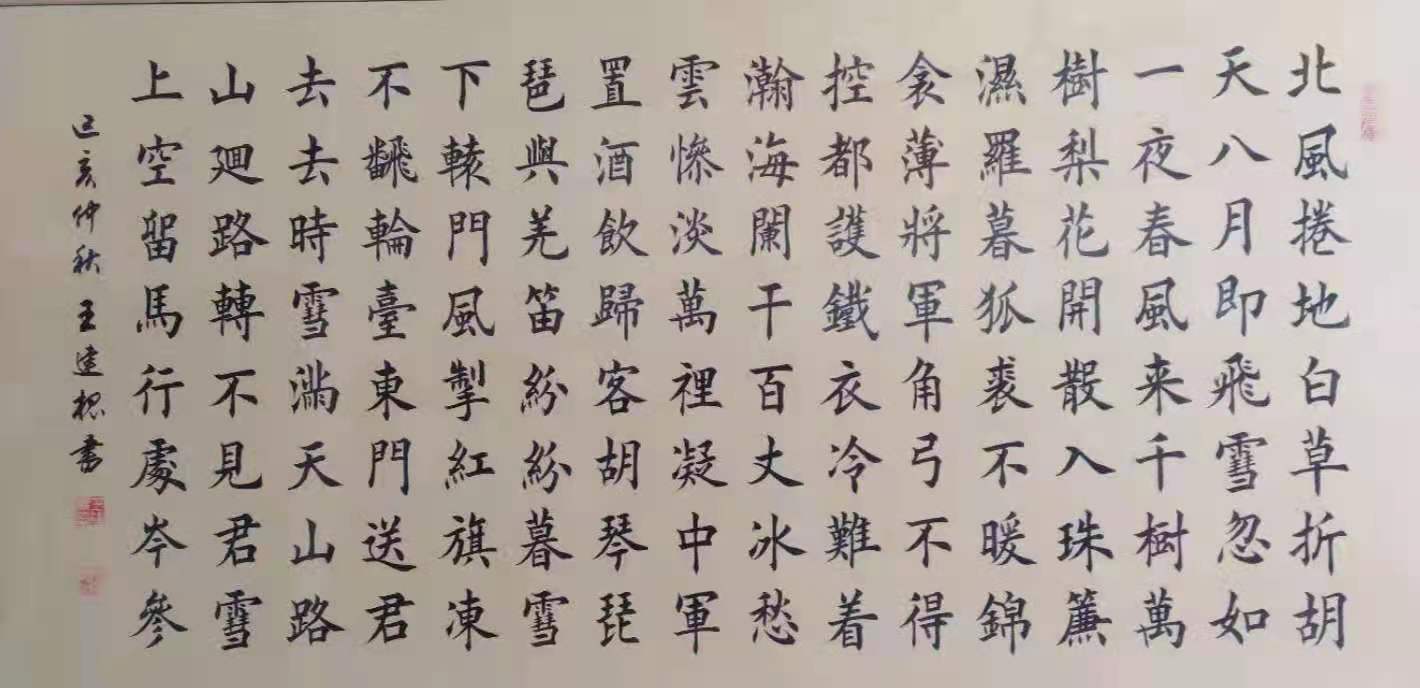 北風捲地白草折胡
天八月即飛雪忽如
一夜春風来千樹萬
樹梨花開散入珠簾
濕羅暮狐裘不暖錦
衾薄將軍角弓不得
控都護鐵衣冷難着
瀚海闌干百丈冰愁
雲惨淡萬裡凝中軍
置酒飲歸客胡琴琵
琶與羌笛紛紛暮雪
下轅門風掣紅旗凍
不飜輪臺東門送君
去去時雪滿天山路
山廻路轉不見君雪
上空留馬行處岑參
己亥仲秋王建松書